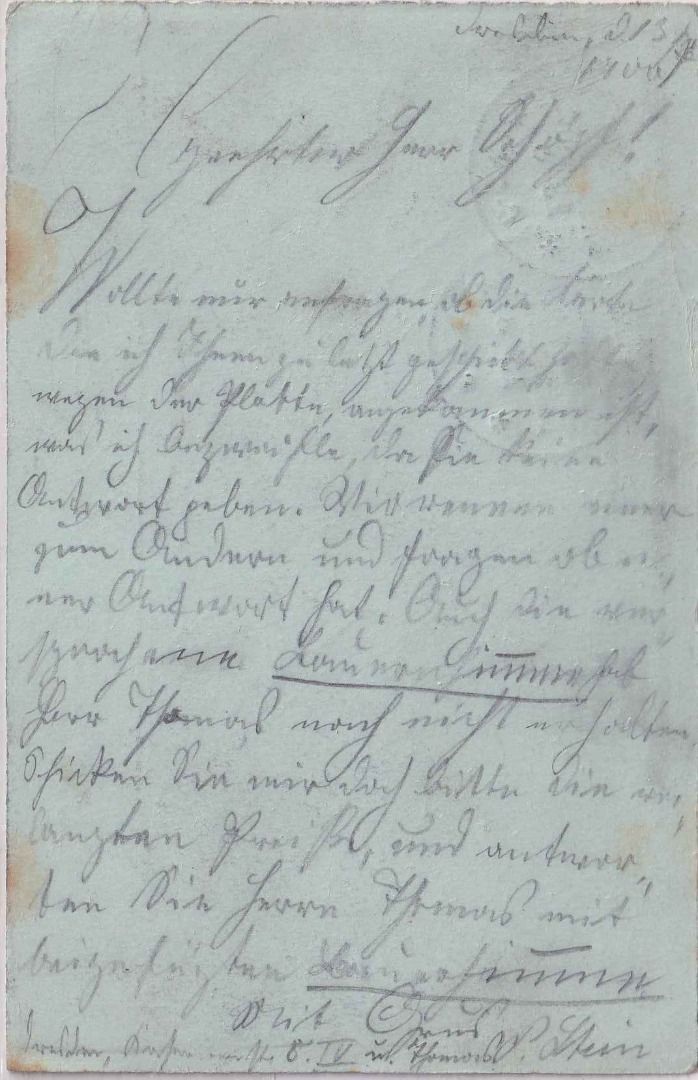 Dresden, d. 13
1900
Geehrter Herr Schöpf!
Wollte nur anfragen, ob die Karte
die ich Ihnen zuletzt geschickt habe
wegen der Platte, angekommen ist,
was ich bezweifle, da Sie keine
Antwort geben. Wir rennen einer
zum Andern und fragen ob ei-
ner Antwort hat. Auch die ver-
sprochene hat
Herr Thomas noch nicht erhalten
Schicken Sie mir doch bitte die ver-
langten Preise, und antwor-
ten Sie Herrn Thomas mit
beigefügten
Mit Grus
Dresden, 8. IV Thomas. P. Stein